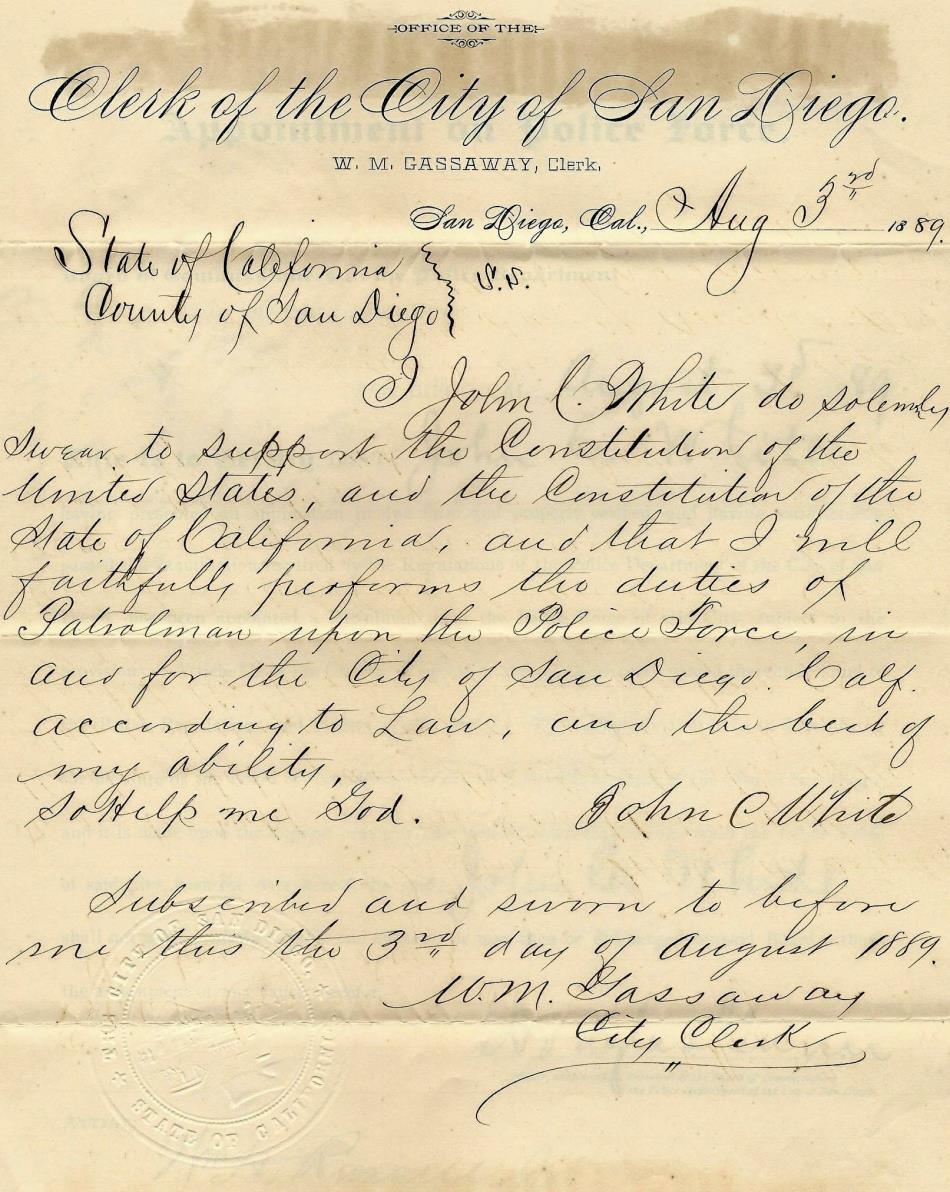 OFFICE OF THE
Clerk of the City of San Diego.
Appointment on Police Force
W. M. GASSAWAY, Clerk.
San Diego, Cal., Aug 3rd 1889.
State of California
County of San Diego
S.S.
I John C. White do solemnly
swear to support the Constitution of the
United States, and the Constitution of the
State of California, and that I will
faithfully performs the duties of
Patrolman upon the Police Force, in
and for the City of San Diego. Calf.
according to Law, and the best of
my ability,
So Help me God.
John C White
Subscribed and sworn to before
me this the 3rd day of August 1889.
W.M. Gassaway
City Clerk
THE CITY OF SAN DIEGO.
STATE OF CALIFORNIA